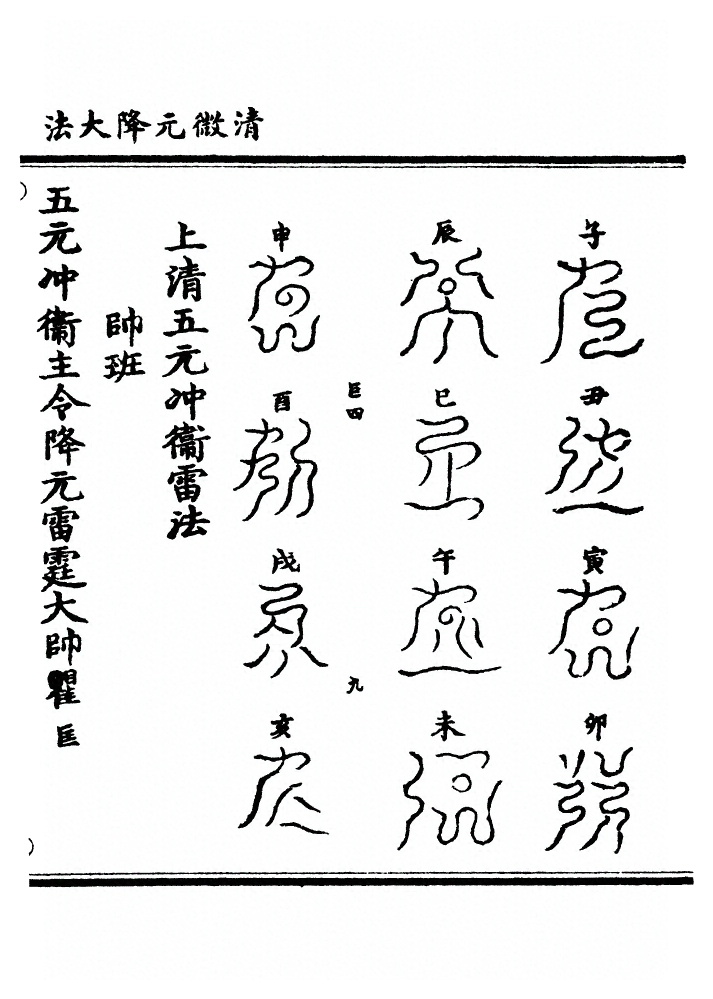 清微元降大法
子
丑
寅
卯
辰
巳
午
未
巨四
九
申
酉
戌
亥
上清五元冲衞雷法
帥班
五元冲衞主令降元雷霆大帥瞿